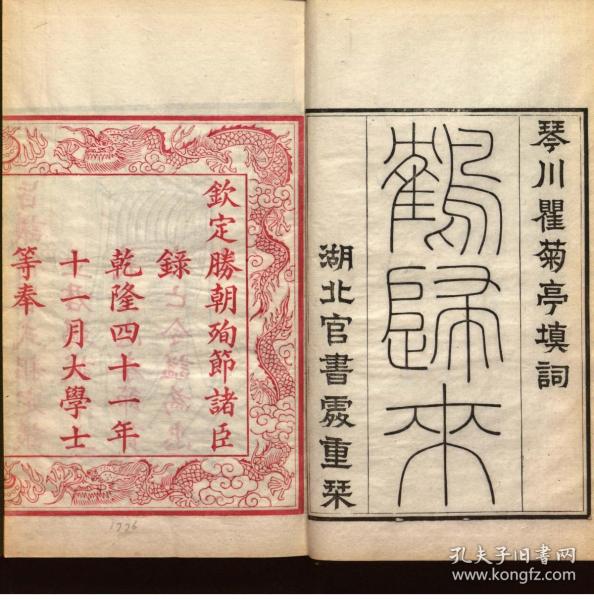 琴川瞿菊亭填詞
鶴歸來
湖北官書處重栞
欽定勝朝殉節諸臣
錄
乾隆四十一年
十一月大學士
等奉
1776
孔夫子旧书网
www.kongfz.com